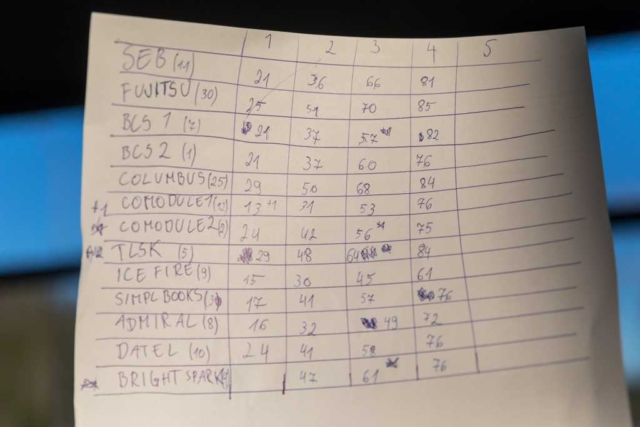 1 2 3 4 5
SEB (11) 21 36 66 81
FUJITSU (30) 25 51 70 85
BCS 1 (7) 21 37 57 82
BCS 2 (1) 21 37 60 76
COLUMBUS (25) 29 50 68 84
COMODULE 1 13 +1 31 53 76
COMODULE 2 24 42 56 75
TLSK (5) 29 48 64 84
ICE FIRE (9) 15 30 45 61
SIMPL BOOKS 17 41 57 76
ADMIRAL (8) 16 32 49 72
DATEL (10) 24 41 58 76
BRIGHT SPARK 47 61 76